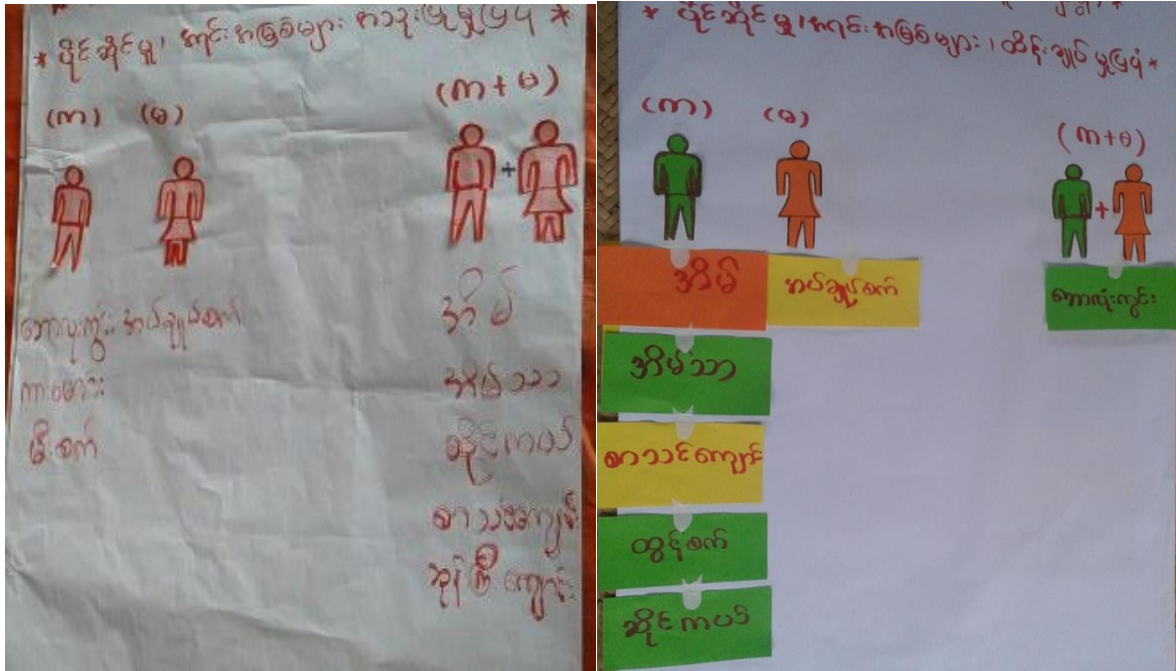 * ပိုင်ဆိုင်မှု၊ အရင်းအမြစ်များ အသုံးပြုမှုပြပုံ *
(က) (မ) (က + မ)
+
ဘောလုံးကွင်း အပ်ချုပ်စက် အိမ်
ကားမောင်း အိမ်သာ
မီးစက် ဆိုင်ကယ်
စာသင်ကျောင်း
ဘုန်းကြီးကျောင်း
* ပိုင်ဆိုင်မှု၊ အရင်းအမြစ်များ၊ ထိန်းချုပ်မှုပြပုံ *
(က) (မ) (က+မ)
+
အိမ် အပ်ချုပ်စက် ဘောလုံးကွင်း
အိမ်သာ
စာသင်ကျောင်း
ထွန်စက်
ဆိုင်ကယ်